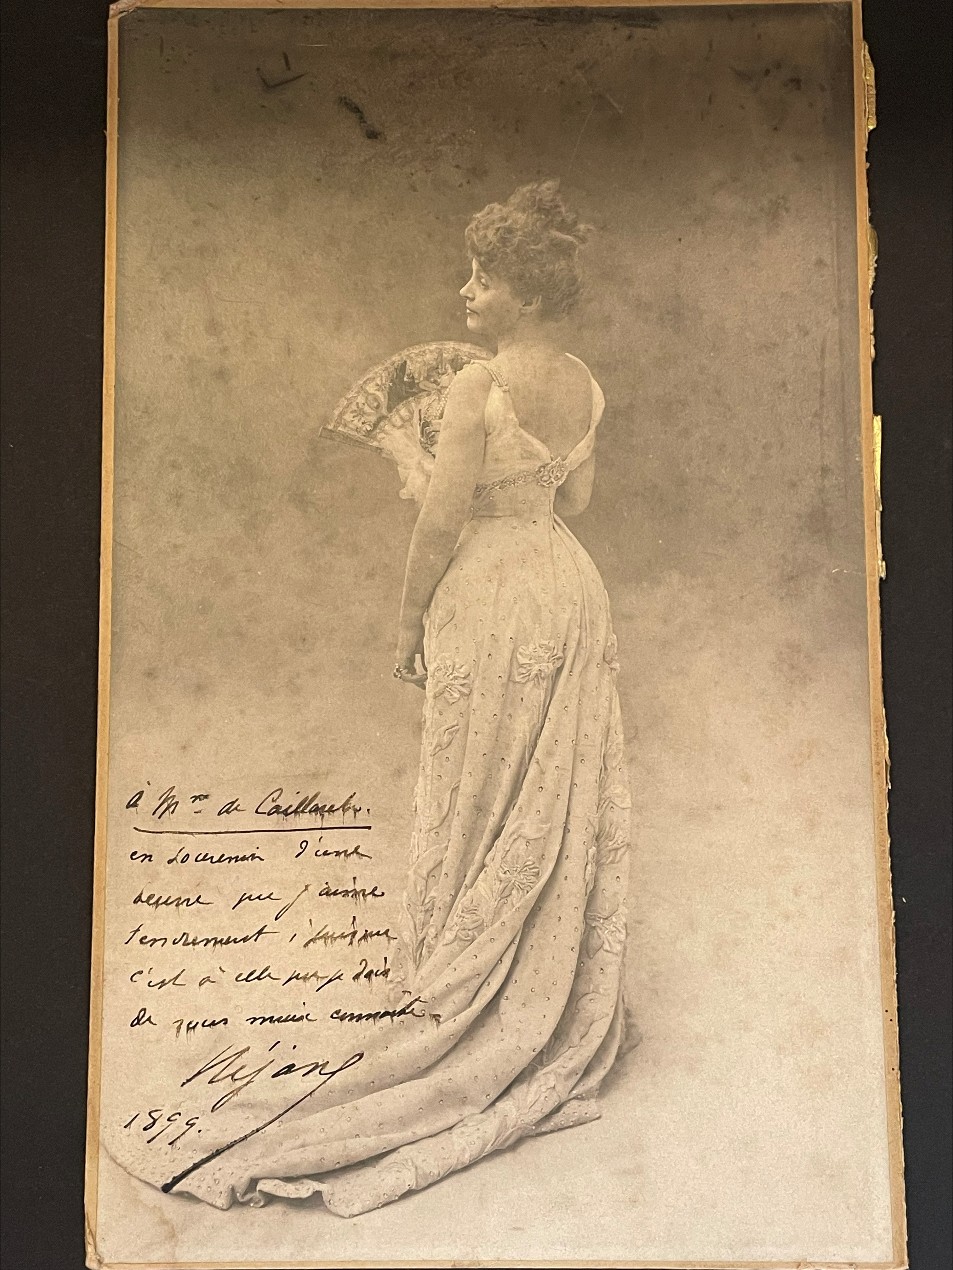 à Mme de Caillavet.
en souvenir d'une
œuvre que j'aime
tendrement, puisque
c'est à elle que je dois
de vous mieux connaître.
Réjane
1899.